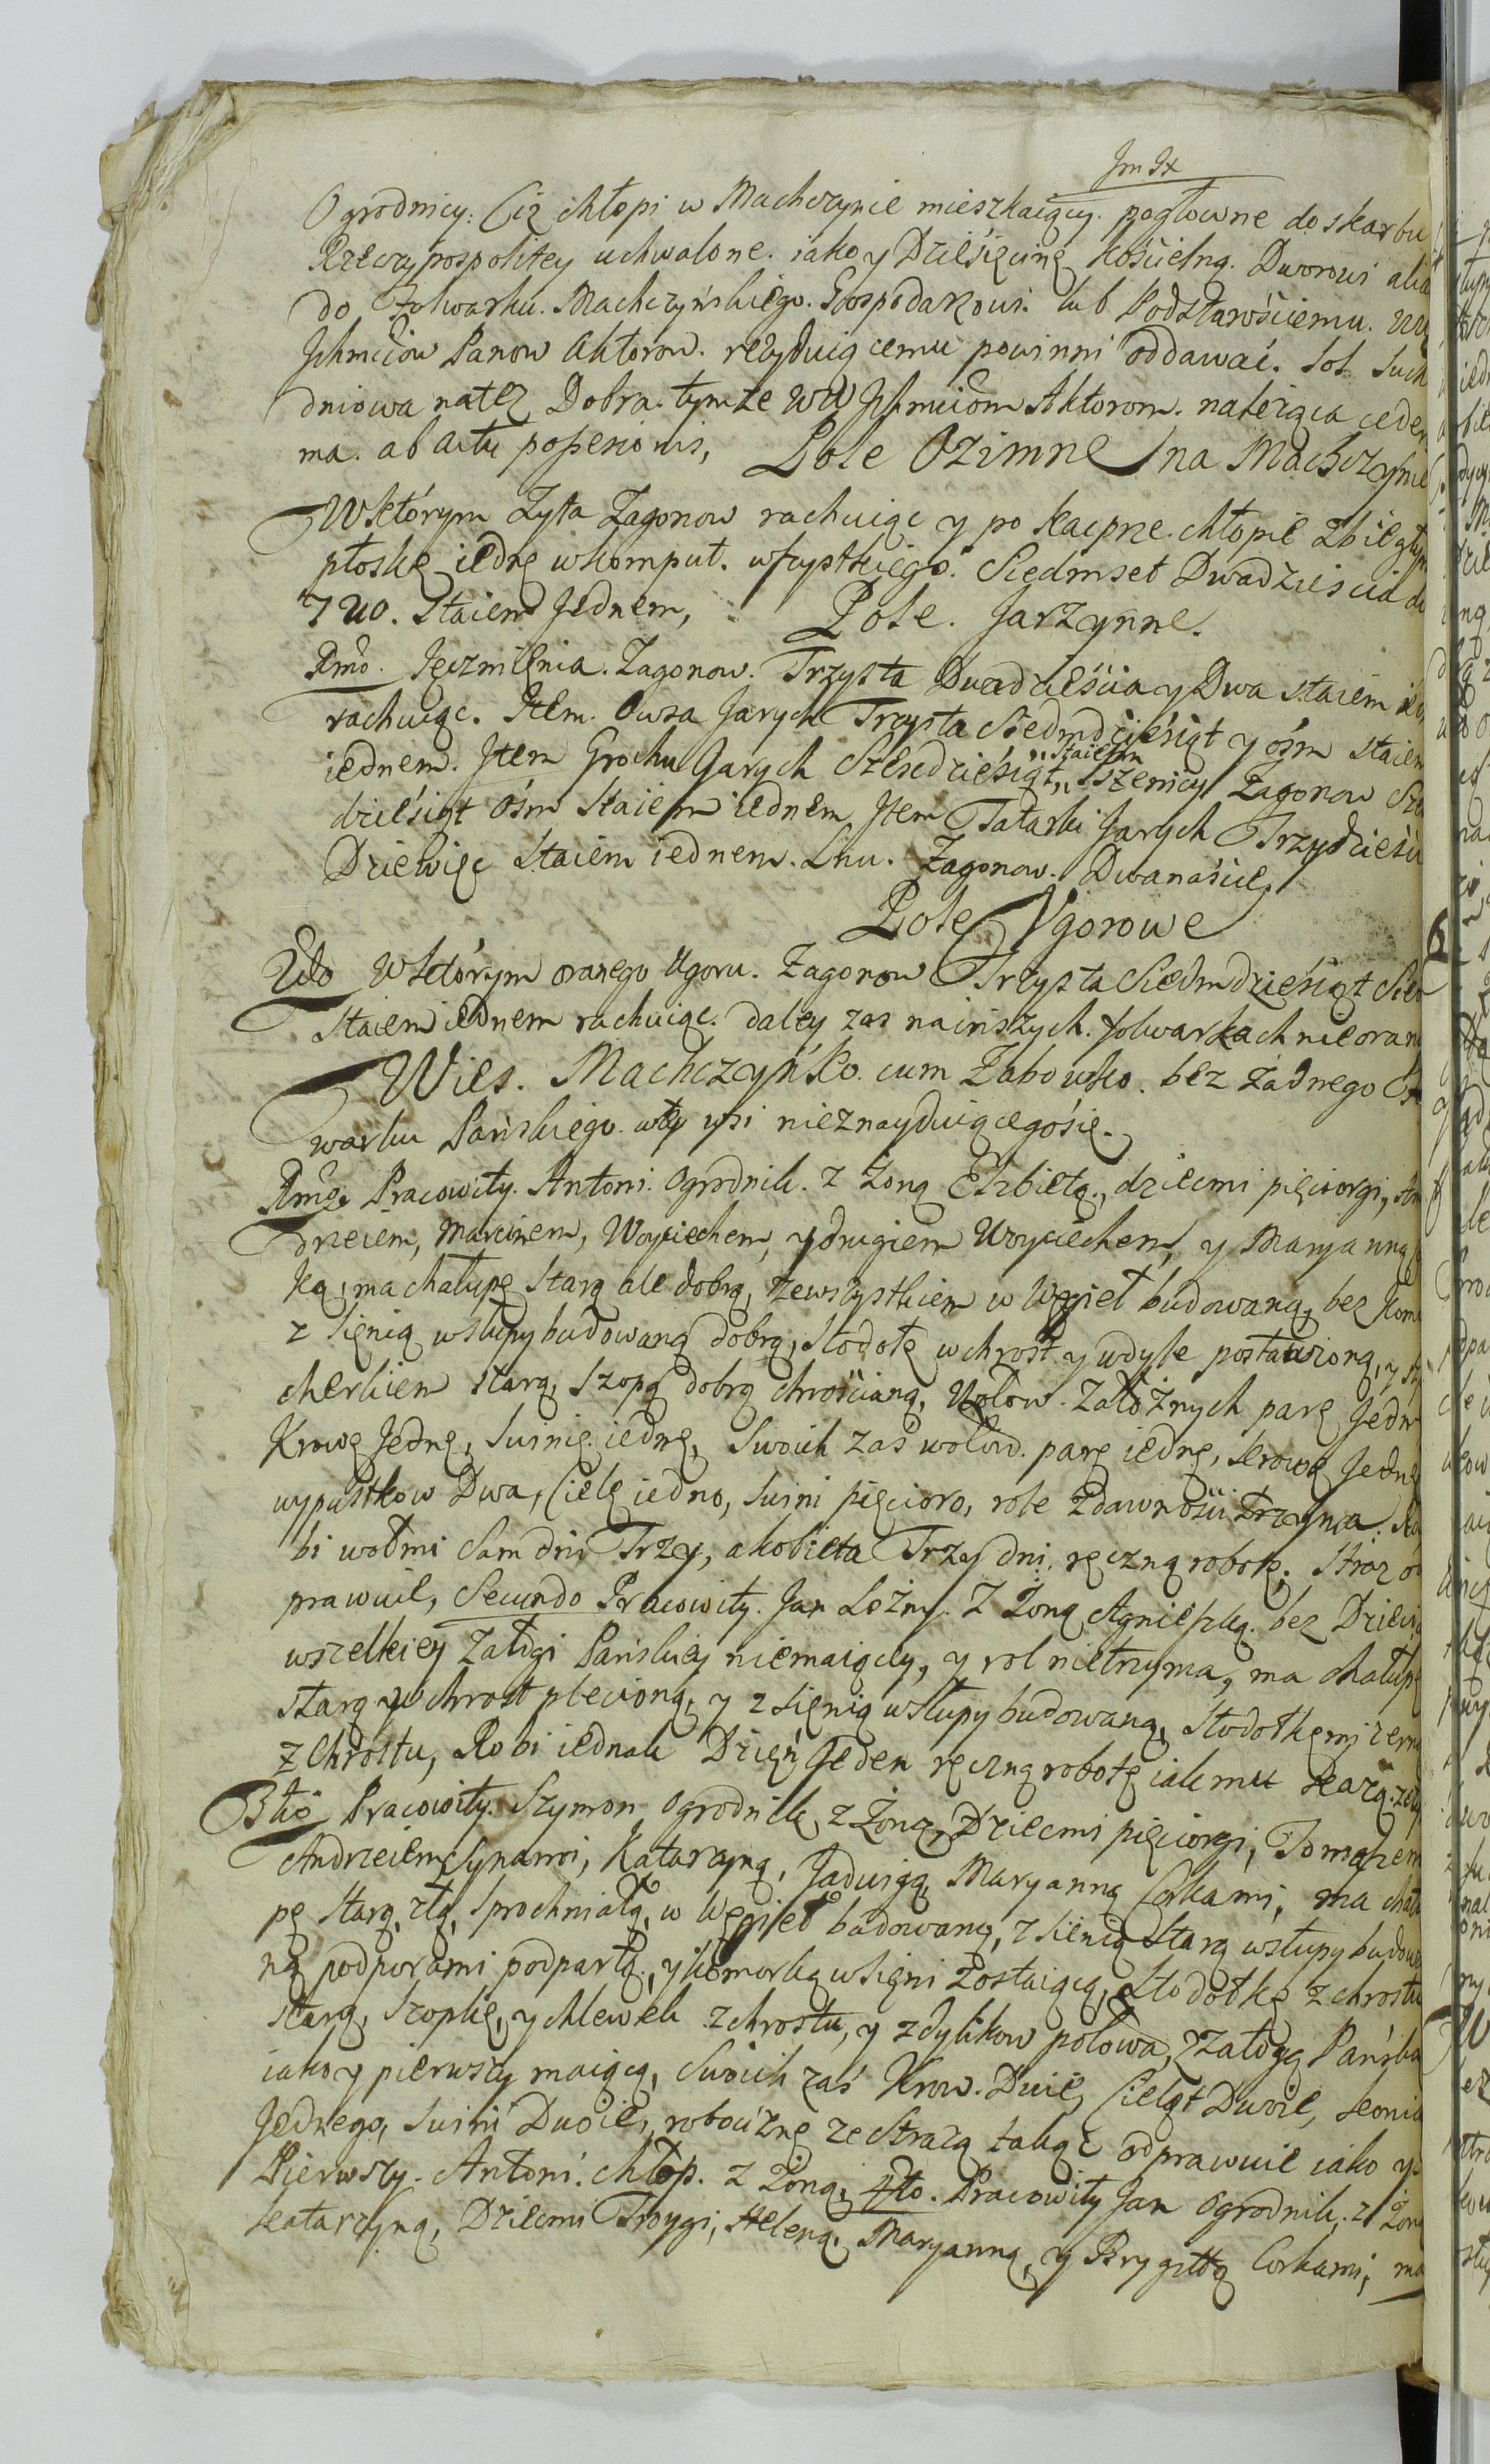 Jm Jx
Ogrodnicy: Ciż chłopi w Machczynie mieszkaiący. pogłowne do skarbu
Rzeczypospolitey uchwalone. iako y Dziesięcinę kościelną. Dworowi alia
do Folwarku. Machczyńskiego. Gospodarzowi. lub Podstarościemu. WW
Jchmciow Panow Aktorow. rezyduiącemu powinni oddawać. Sol Such
dniowa na też Dobra. tymże WW Jchmciom Aktorom. należąca
ma. ab actu possesionis, Pole Ozimne na Machczynie
W którym Zyta Zagonow rachuiąc y po Kacprze. chłopie zbiegłym
płoskę iednę w komput. wszystkiego. Siedmset Dwadzieścia
720. Staiem Jednem, Pole. Jarzynne.
Rmo. Jęczmienia. Zagonow. Trzysta Dwadzieścia y Dwa staiem
rachuiąc. Item. Owsa Jarych Trzysta Siedmdziesiąt y ośm staiem
iednem. Jtem Grochu Jarych Sześdziesiąt, Pszenicy Zagonow
staiem
dziesiąt Ośm Staiem iednem Jtem Tatarki Jarych Trzydzieści
Dziewięć Staiem iednem. Lnu. Zagonow. Dwanaście,
Pole Ugorowe
W którym oranego Ugoru. Zagonow Trzysta Siedmdziesiąt
Staiem iednem rachuiąc. daley zas na inszych. folwarkach nieoran
Wies. Machczyńko. cum Zabowsko. bez żadnego
warku Pańskiego. w tey wsi nieznayduiącego się.
Rmo. Pracowity. Antoni. Ogrodnik. z Zoną Elzbietą, dziecmi pięciorgi, An
drzeiem, Marcinem, Woyciechem, y drugiem Woyciechem, y Maryanną
ką, ma chałupę Starą ale dobrą, ze wszystkiem w Węgieł budowaną, bez
z Sienią w słupy budowaną dobrą, Stodołę w chrost y w dyle postawioną, y
chlerkiem starą, Szopę dobrą chrościaną, Wołow. Załoźnych parę Jedn
Krowę Jednę, Swinię iednę, Swoich zaś wołow. parę iednę, krowę Jednę
wypustkow Dwa, Cielę iedno, Swini pięcioro, role zdawności trzyma. Ro
bi wołmi Sam dni Trzy, a kobieta Trzy dni, ręczną robotę. Straz od
prawuie, Secundo Pracowity. Jan Leżny. Z Zoną Agnieszką. bez Dzieci
wszelkiey Załogi Pańskiey niemaiący, y rol nietrzyma, ma chałupę
starą w chrost plecioną, y z sienią w słupy budowaną, Stodołkę
z Chrostu, Robi iednak Dzień Jeden ręczną robotę iak mu każą.
3tio Pracowity. Szymon Ogrodnik, z Zoną, Dziecmi pięciorgi, Tomaszem
Andrzeiem Synami, Katarzyną, Jadwigą, Maryanną Corkami, ma chału
pę Starą, złą, Sprochniałą, w Węgieł budowaną, z sienią Starą w słupy budowa
ną podporami podpartą, y komorką w sieni zostaiącą, Stodołkę z chrostu
starą, Szopkę, y chlewek z chrostu, y z dylikow połowa, Załogę Pańska
iako y pierwszy maiącą, Swoich zaś Krow. Dwie, Cieląt Dwoie, konia
Jednego, Swini Dwoie, robociznę ze Strażą takąż odprawuie iako y
Pierwszy. Antoni. chłop. z Zoną, 4to. Pracowity Jan Ogrodnik. z Zoną
Katarzyną, Dziecmi Troygi, Heleną, Maryanną, y Brygittą Corkami, ma